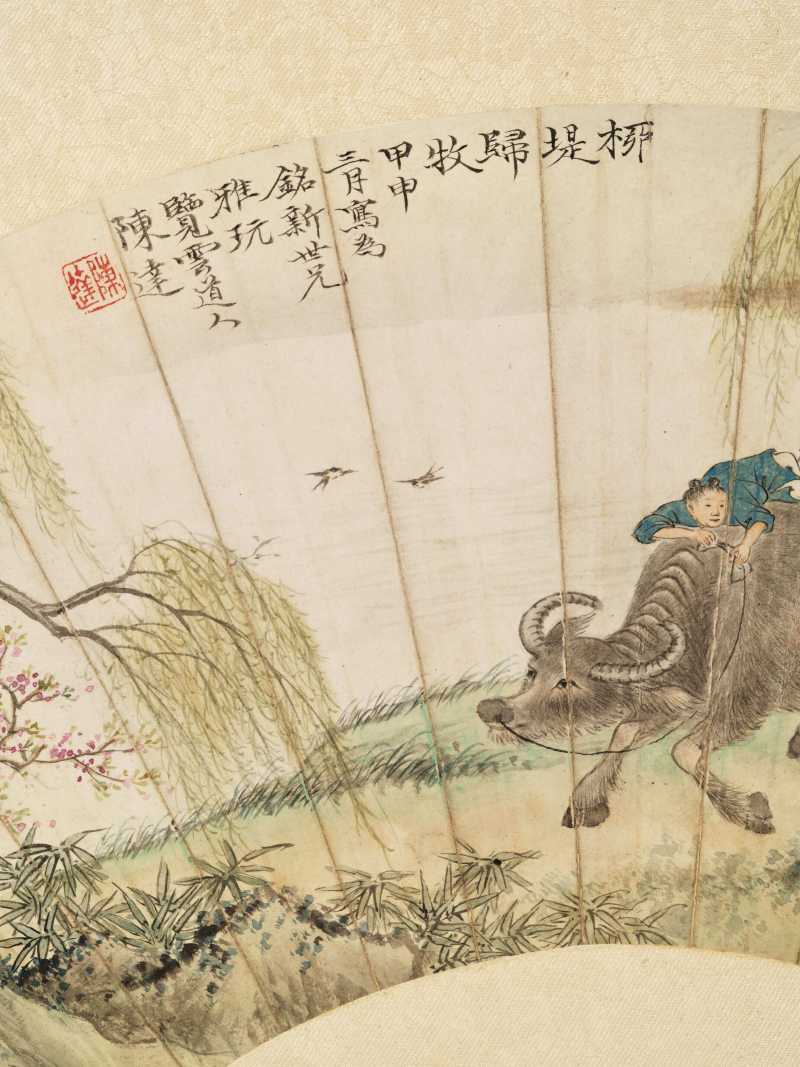 柳堤歸牧
甲申
三月寫為
銘新世兄
雅玩
覽雲道人
陳達
陳達